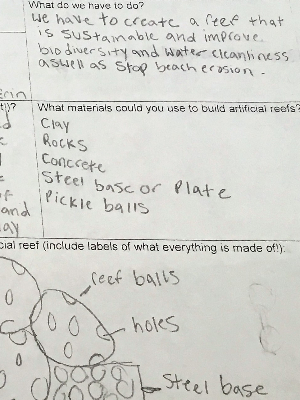 What do we have to do?
We have to create a reef that
is sustainable and improve
biodiversity and water cleanliness
aswell as stop beach erosion.
Erin
What materials could you use to build artificial reefs?
Clay
Rocks
Concrete
Steel base or Plate
Pickle balls
and
cial reef (include labels of what everything is made of!):
reef balls
holes
Steel base